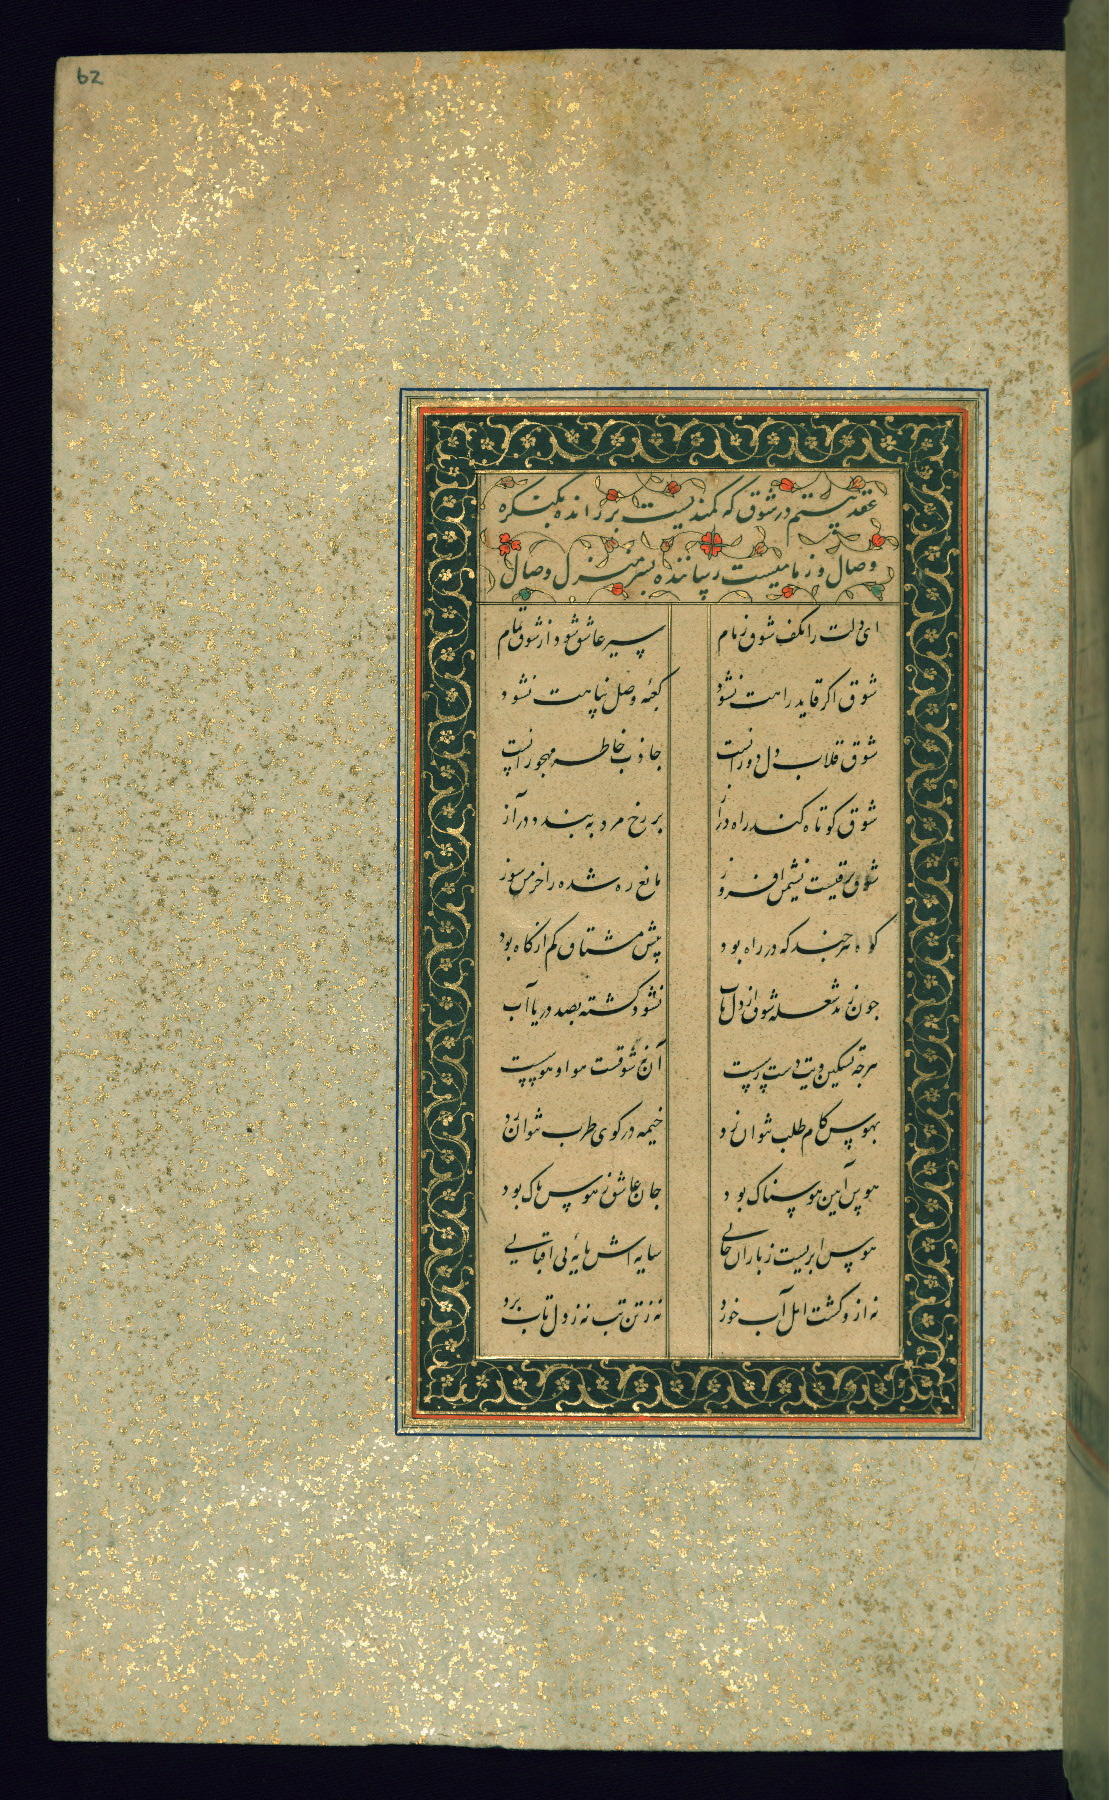 62
عقد بیستم در شوق که کمندیست بر راننده بکنکره
وصال و زمامیست رساننده بسر منزل وصال
ای دلت را بکف شوق زمام
سیر عاشق شود از شوق تمام
شوق اکر قاید راهت نشود
کعبهٔ وصل پناهت نشود
شوق قلاب دل دورانست
جاذب خاطر مهجورانست
شوق کوتاه کند راه دراز
بر رخ مرد ببندد در آز
شوق برقیست نشیمن افروز
مانع ره شده را خرمن سوز
کوه هر چند که در راه بود
پیش مشتاق کم از کاه بود
چون زند شعله شوق از دل تاب
نشود کشته بصد دریا آب
هر چه تسکین دهیت دست رسست
آن نه شوقست هوا و هوسست
بهوس کام طلب نتوان زد
خیمه در کوی طرب نتوان زد
هوس آیین هوسناک بود
جان عاشق ز هوس پاک بود
هوس ابریست ز باران خالی
سایه اش مایهٔ بی اقبالی
نه ازو کشت امل آب خورد
نه ز تن تب نه ز دل تاب برد